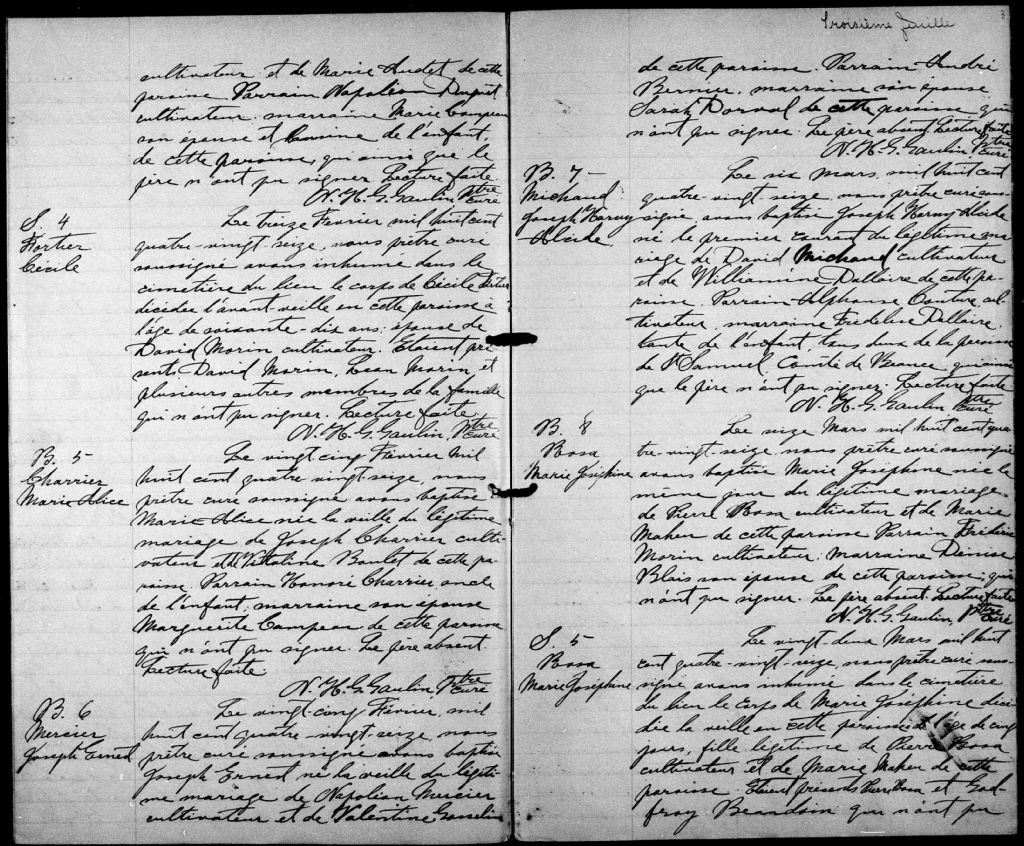 cultivateur et de Marie Audet de cette
paroisse Parrain Napoléon Dupuit
cultivateur, marraine Marie Campeau
son épouse et cousine de l'enfant,
de cette paroisse, qui ainsi que le
père n'ont pu signer. Lecture faite.
N. H. G. Gaulin, Ptre Curé
S. 4
Fortier
Cécile
Le treize Février mil huit cent
quatre-vingt seize, nous prêtre curé
soussigné avons inhumé dans le
cimetière du lieu le corps de Cécile Fortier
décédée l'avant-veille en cette paroisse à
l'âge de soixante-dix ans, épouse de
David Morin cultivateur. Etaient pré-
sents David Morin, Léon Morin, et
plusieurs autres membres de la famille
qui n'ont pu signer. Lecture faite.
N. H. G. Gaulin, Ptre Curé
B. 5
Charrier
Marie Alice
Le vingt cinq Février mil
huit cent quatre vingt-seize, nous
prêtre curé soussigné avons baptisé
Marie-Alice née la veille du légitime
mariage de Joseph Charrier culti-
vateur et de Vitaline Boulet de cette pa-
roisse. Parrain Honoré Charrier oncle
de l'enfant, marraine son épouse
Marguerite Campeau de cette paroisse
qui n'ont pu signer. Le père absent.
Lecture faite.
N. H. G. Gaulin, Ptre Curé
B. 6
Mercier
Joseph Ernest
Le vingt-cinq Février, mil
huit cent quatre vingt-seize, nous
prêtre curé soussigné avons baptisé
Joseph Ernest né la veille du légiti-
me mariage de Napoléon Mercier
cultivateur et de Valentine Gosselin
Troisième feuille
de cette paroisse. Parrain André
Bernier, marraine son épouse
Sarah Dorval de cette paroisse qui
n'ont pu signer. Le père absent. Lecture faite
N. H. G. Gaulin, Ptre Curé
B. 7
Michaud
Joseph Henry
Alcide
Le six mars, mil huit cent
quatre-vingt-seize, nous prêtre curé sous-
signé, avons baptisé Joseph Henry Alcide
né le premier courant du légitime ma-
riage de David Michaud cultivateur
et de Williamine Dallaire de cette pa-
roisse. Parrain Alphonse Couture cul-
tivateur, marraine Fredeline Dallaire
tante de l'enfant, tous deux de la paroisse
de St Samuel, Comté de Beauce, qui ainsi
que le père n'ont pu signer. Lecture faite
N. H. G. Gaulin, Ptre Curé
B. 8
Rosa
Marie Joséphine
Le seize Mars mil huit cent qua-
tre-vingt-seize, nous prêtre curé soussigné
avons baptisé Marie Joséphine née le
même jour du légitime mariage
de Pierre Rosa cultivateur et de Marie
Maheu de cette paroisse Parrain
Morin cultivateur, marraine Denise
Blais son épouse de cette paroisse, qui
n'ont pu signer. Le père absent. Lecture faite
N. H. G. Gaulin, Ptre Curé
S. 5
Rosa
Marie Joséphine
Le vingt-deux Mars mil huit
cent quatre-vingt-seize, nous prêtre curé sous-
signé avons inhumé dans le cimetière
du lieu le corps de Marie Joséphine décé-
dée la veille en cette paroisse à l'âge de cinq
jours, fille légitime de Pierre Rosa
cultivateur et de Marie Maheu de cette
paroisse. Etaient présents Pierre Rosa et God-
froy Beaudoin qui n'ont pu